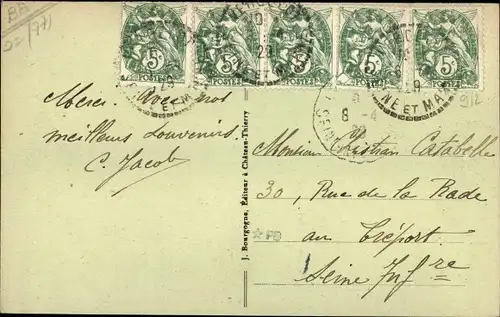 5c 5c 5c 5c 5c
POSTES POSTES POSTES
NE ET MAR
8 -4
Merci. Avec nos
meilleurs souvenirs.
C. Jacob
J. Bourgogne, Éditeur à Château-Thierry
Monsieur Christian Catabelle
30, Rue de la Rade
au Tréport.
Seine Infre